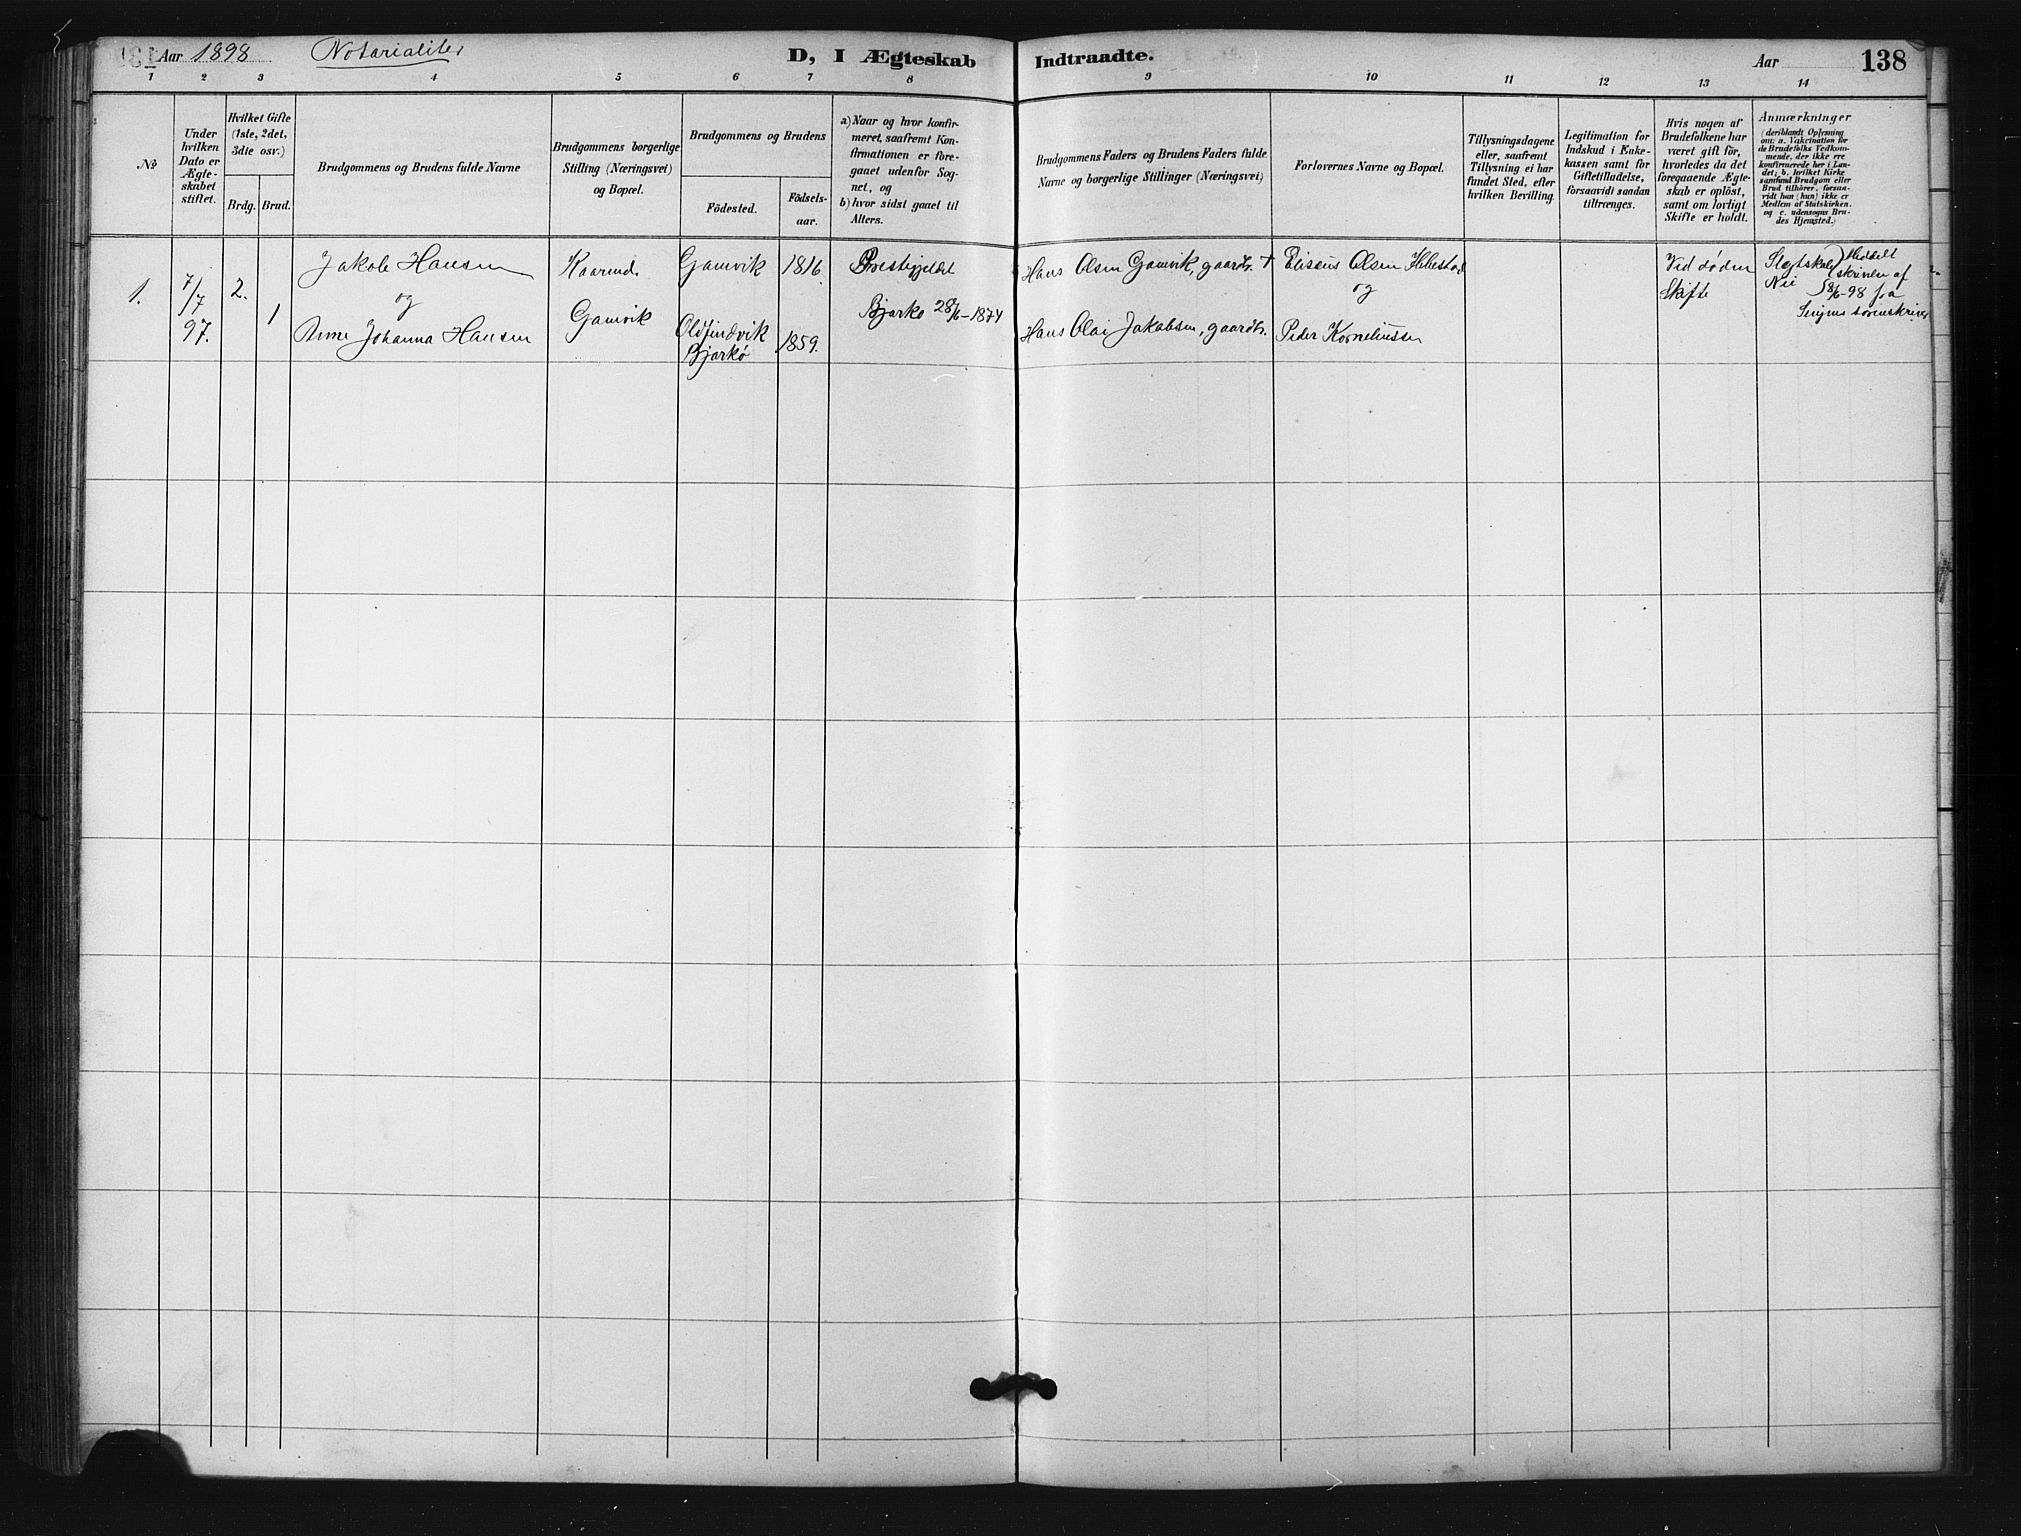 Aar 1898 Notarialiter D, I Ægteskab Indtraadte. Aar 138
1 2 3 4 5 6 7 8 9 10 11 12 13 14
No
Under
hvilken
Dato er
Ægte-
skabet
stiftet.
Hvilket Gifte
(1ste, 2det,
3die osv.)
Brdg. Brud.
Brudgommens og Brudens fulde Navne
Brudgommens borgerlige
Stilling (Næringsvei)
og Bopæl.
Brudgommens og Brudens
Födested.
Födsels-
aar.
a) Naar og hvor konfir-
meret, saafremt Kon-
firmationen er fore-
gaaet udenfor Sog-
net, og
b) hvor sidst gaaet til
Alters.
Brudgommens Faders og Brudens Faders fulde
Navne og borgerlige Stillinger (Næringsvei)
Forlovernes Navne og Bopæl.
Tillysningsdagene
eller, saafremt
Tillysning ei har
fundet Sted, efter
hvilken Bevilling.
Legitimation for
Indskud i Enke-
kassen samt for
Giftetilladelse,
forsaavidt saadan
tiltrænges.
Hvis nogen af
Brudefolkene har
været gift för,
hvorledes da det
foregaaende Ægte-
skab er oplöst,
samt om lovligt
Skifte er holdt.
Anmærkninger
(deriblandt Oplysning
om: a. Vakcination for
de Brudefolks Vedkom-
mende, der ikke ere
konfirmerede her i Lan-
det; b. hvilket Kirke
samfund Brudgom eller
Brud tilhörer, forsaa-
vidt han (hun) ikke er
Medlem af Statskirken.
og c. udensogns Bru-
des Hjemsted.)
1.
7/7
97.
2.
1
Jakob Hansen
og
Anne Johanna Hansen
Kaarmd.
Gamvik
Gamvik
1816
Bjarkö
1859.
Præstegjeldet
Bjarkö 28/6-1874
Hans Olsen Gamvik, gaardb. +
Hans Olai Jakobsen, gaardb.
Eliseus Olsen
og
Peder Korneliussen
Ved døden
Skifte
Slegtskab
Nei
Meddelt
skrivelse af
8/6-98 fra
Senjens sorenskriver